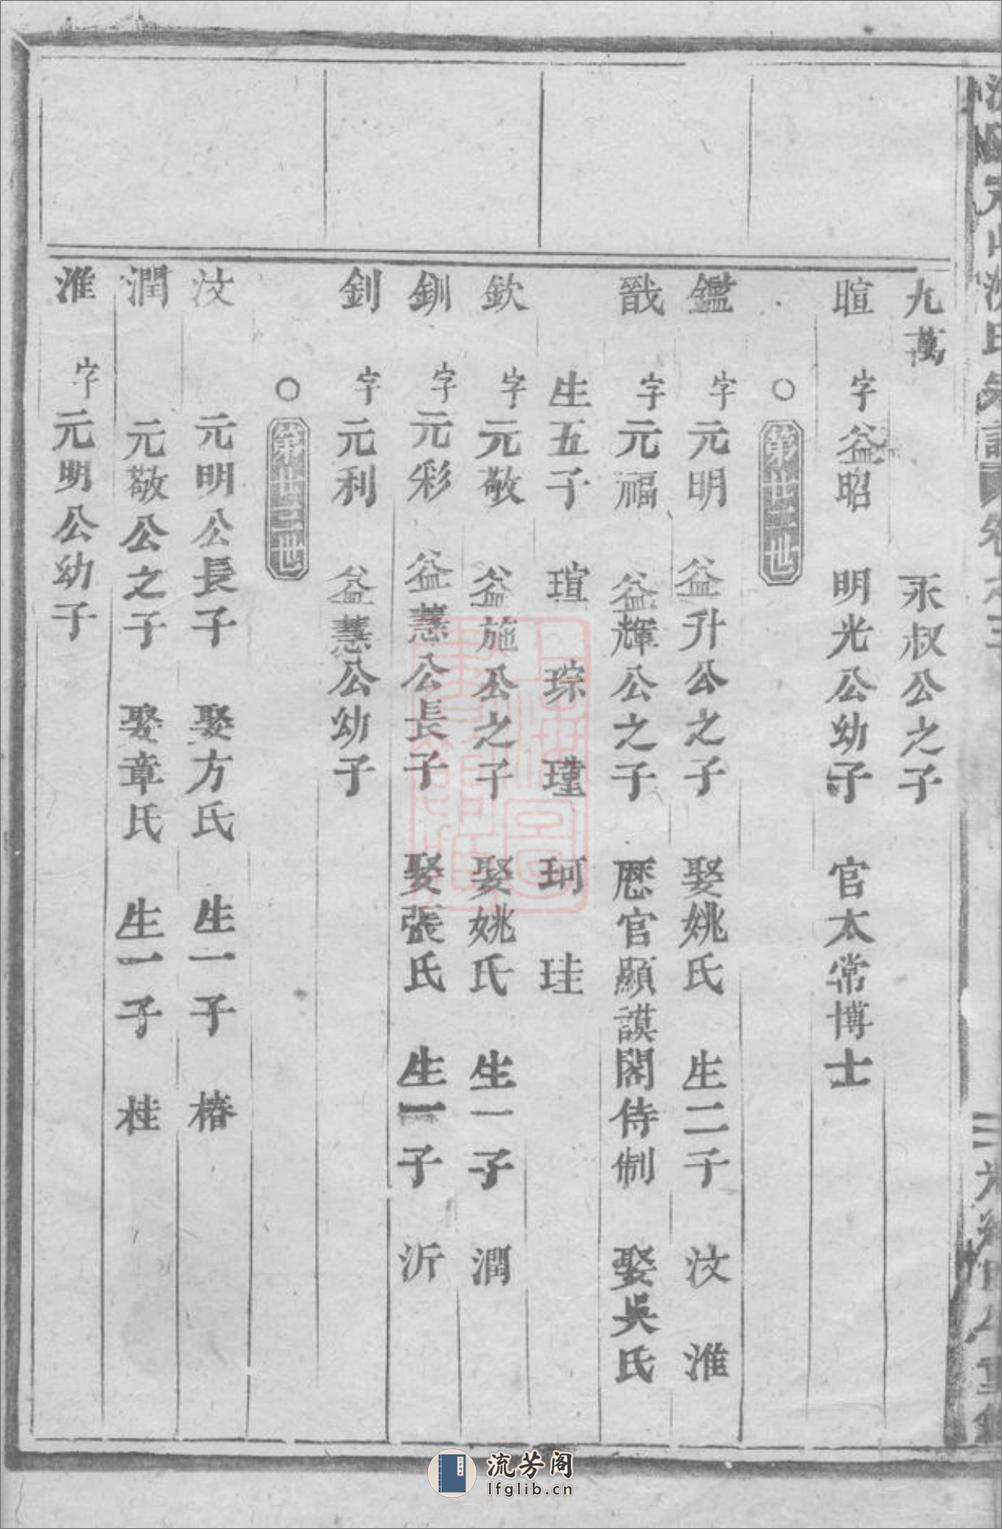 九萬 永叔公之子
暄 字益昭 明光公幼子 官太常博士
○第卅二世
鑑 字元明 益升公之子 娶姚氏 生二子 汶 淮
戩 字元福 益輝公之子 歷官顯謨閣侍制 娶吳氏
生五子 瑄 琮 瑾 珂 珪
欽 字元敬 益施公之子 娶姚氏 生一子 潤
釧 字元彩 益慧公長子 娶張氏 生一子 沂
釗 字元利 益慧公幼子
○第卅三世
汶 元明公長子 娶方氏 生一子 椿
潤 元敬公之子 娶章氏 生一子 桂
淮 字元明公幼子
流芳阁
lfglib.cn